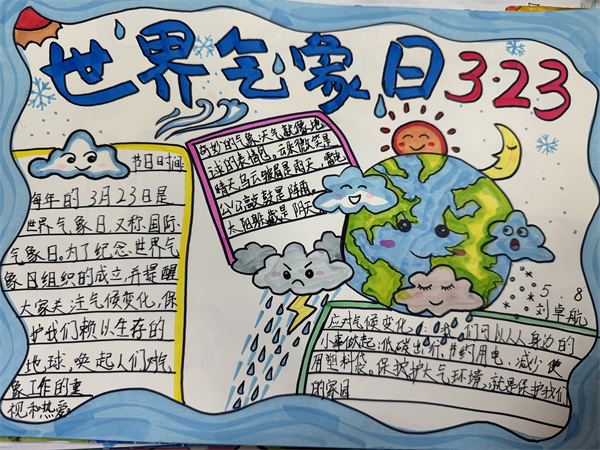 世界气象日3.23
节日时间:
每年的3月23日是
世界气象日,又称国际
气象日。为了纪念世界气
象日组织的成立,并提醒
大家关注气候变化,保
护我们赖以生存的
地球,唤起人们对气
象工作的重
视和热爱。
的气象:天气就像地
球的表情包。云朵微笑是
晴天,乌云皱眉是雨天,雷电
公公敲鼓是阵雨,
太阳躲藏是阴天。
5.8
刘卓航
应对气候变化:我们可以从身边的
小事做起:低碳出行,节约用电,减少使
用塑料袋。保护大气环境,就是保护我们
的家园